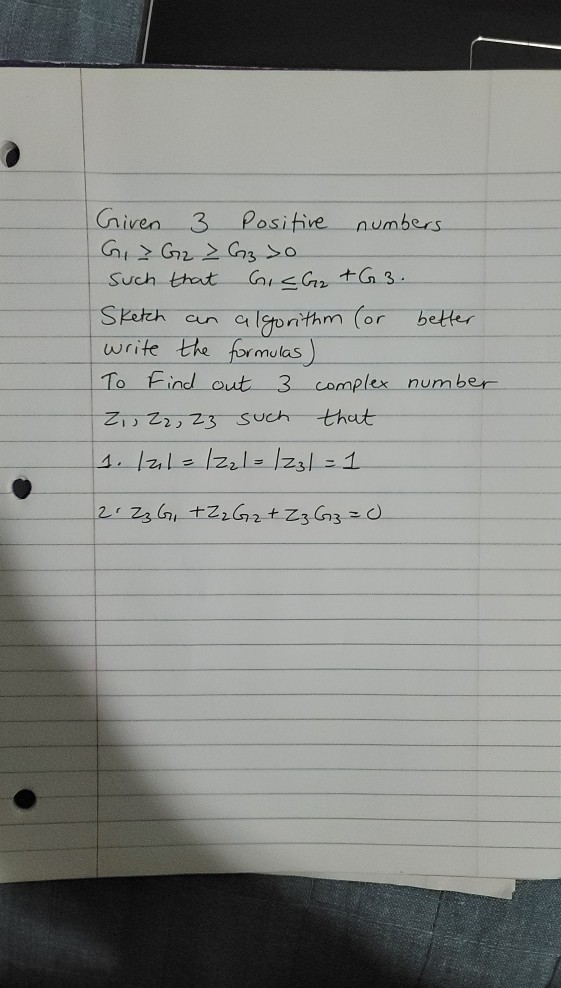 Given 3 Positive numbers
G₁ ≥ G₂ ≥ G₃ >0
Such that G₁ ≤ G₂ + G3.
Sketch an algorithm (or better
write the formulas)
To Find out 3 complex number
Z₁, Z₂, Z3 such that
1. |z₁| = |Z₂| = |Z₃| = 1
2. Z₃G₁ + Z₂G₂ + Z₃G₃ = 0